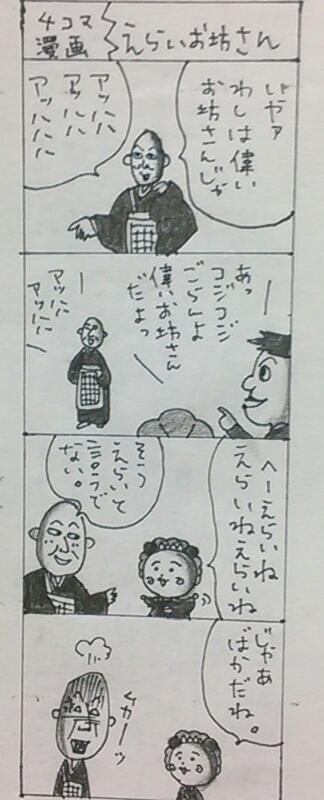 4コマ
漫画
えらいお坊さん
いやァ
わしは偉い
お坊さんじゃ
アッハハ
アッハハ
アッハハハ
あっ
コジコジ
ごらんよ
偉いお坊さん
だよっ
アッハハ
アッハハハ
へーえらいね
えらいねえらいね
そう
えらいえらいと
言うで
ない。
じゃあ
ばかだね。
ムカーッ